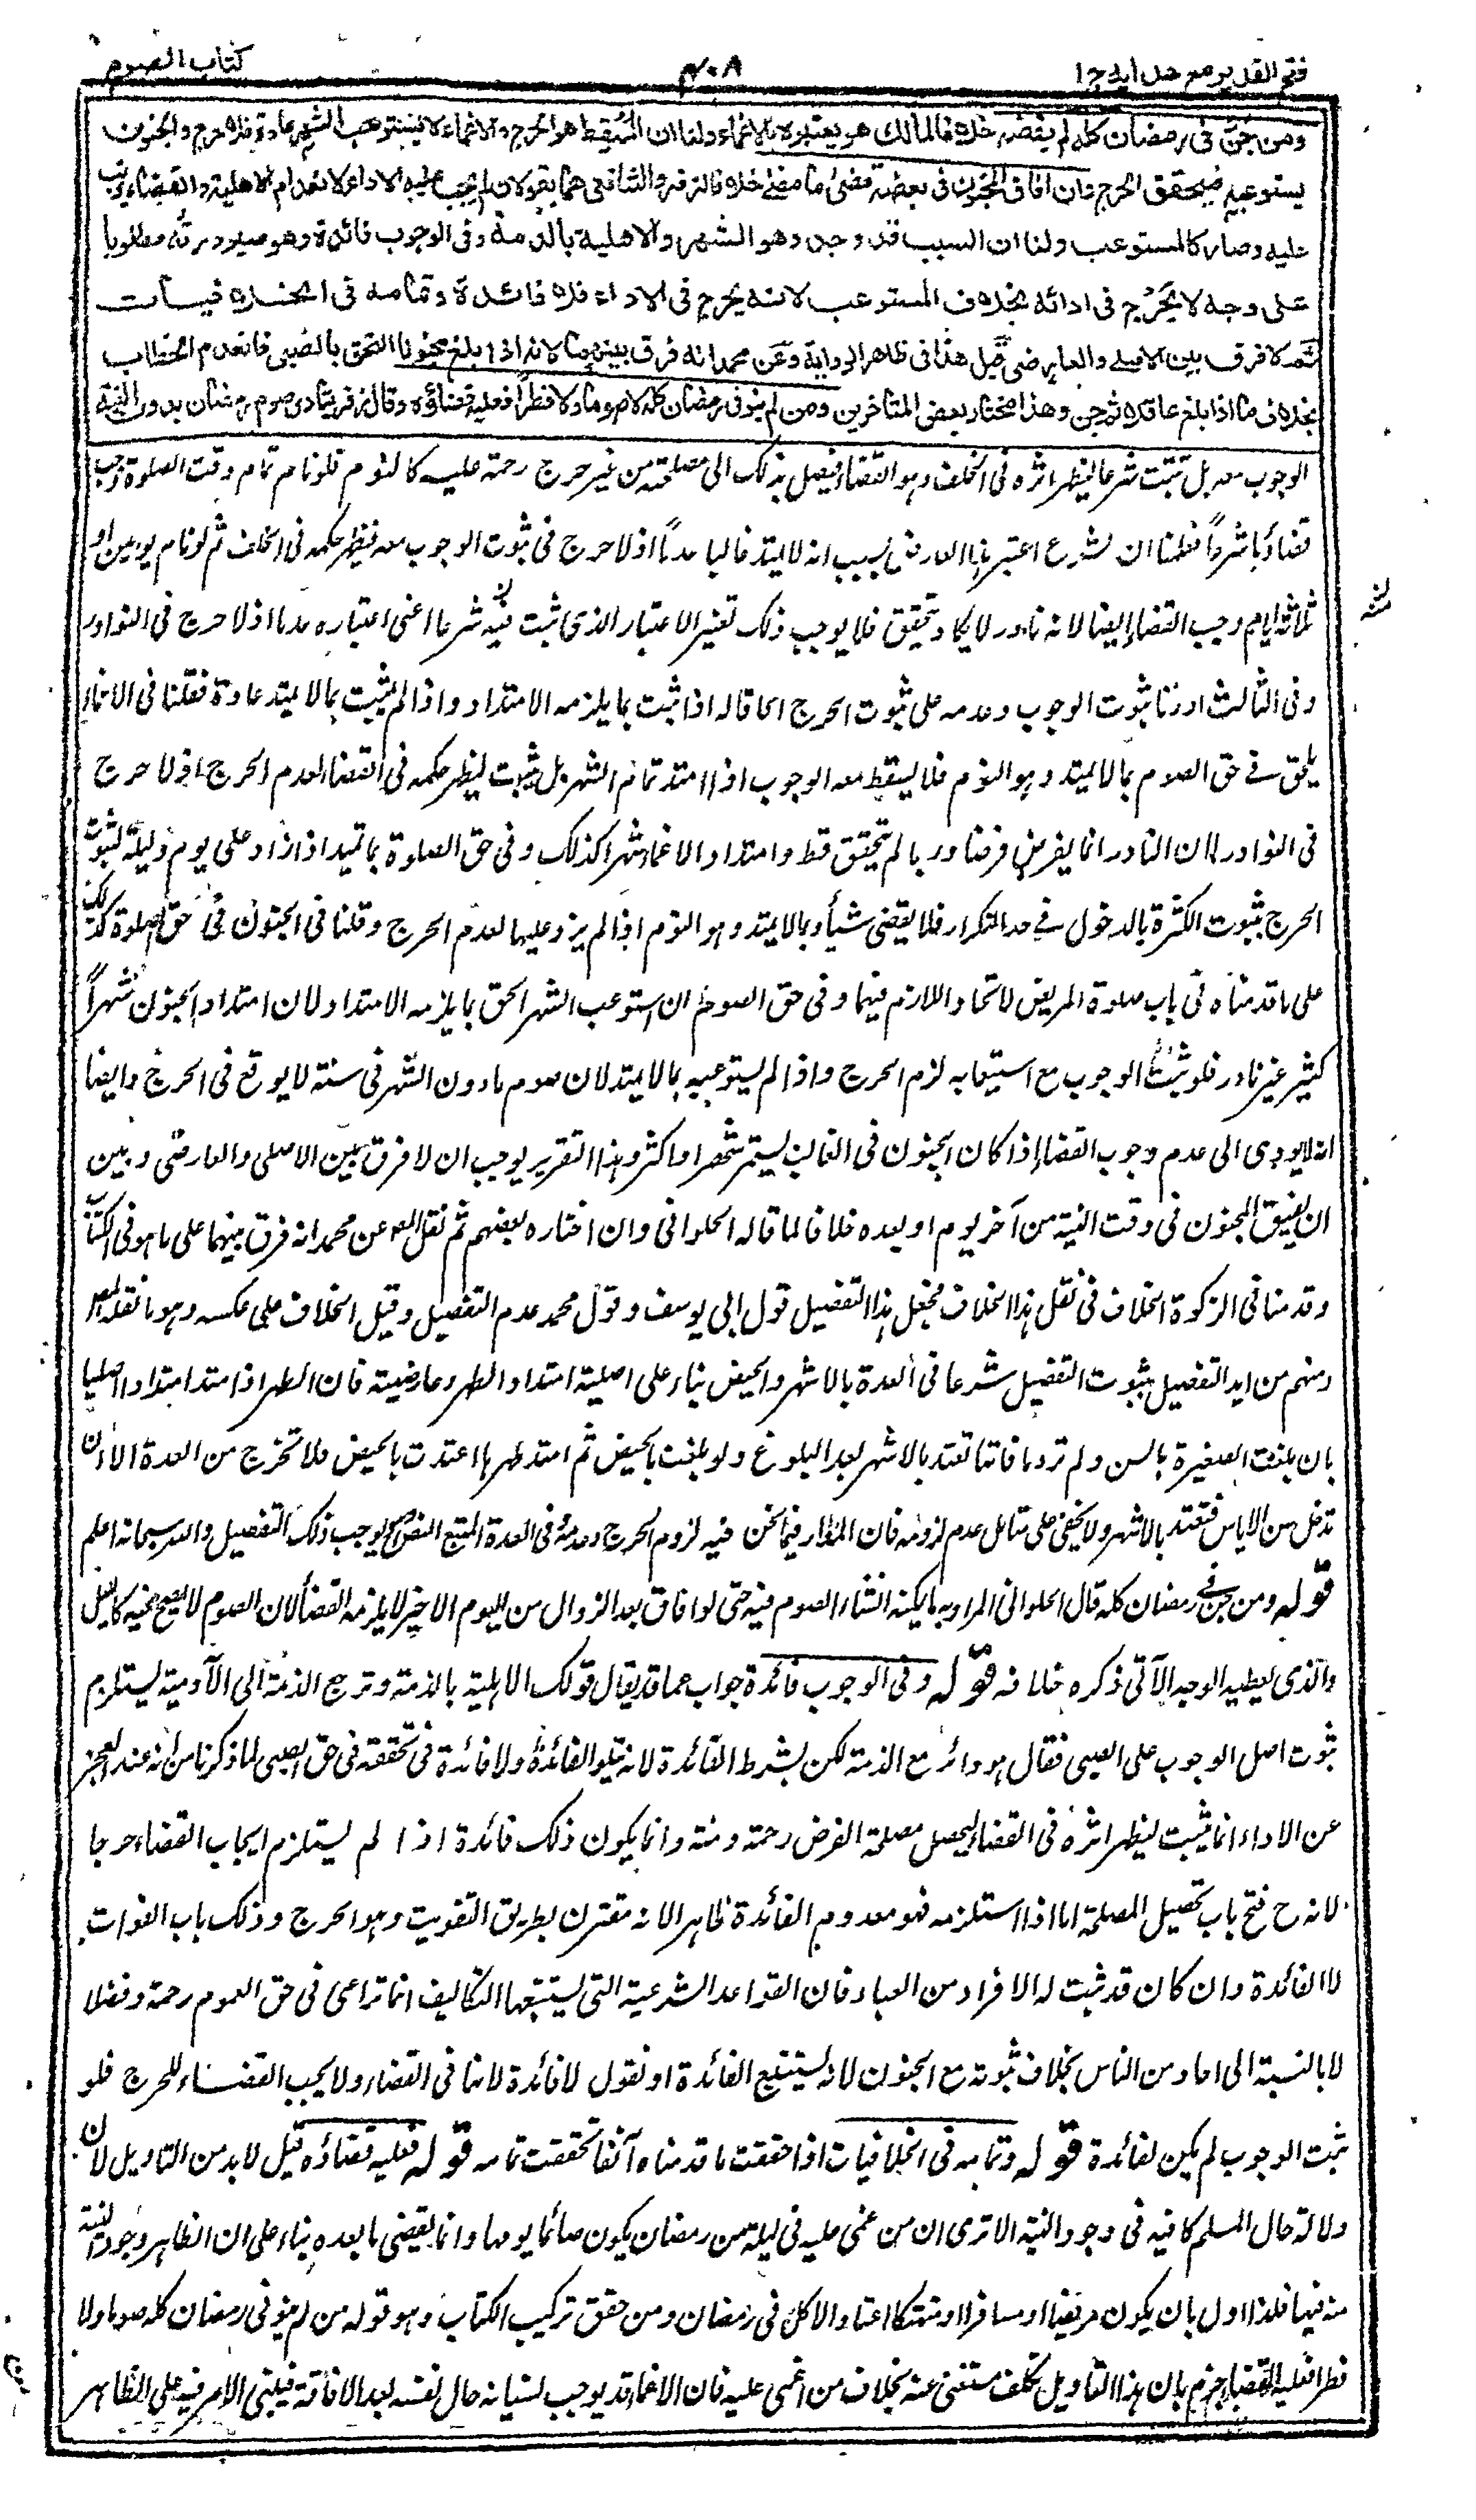 فتح القدير مع هدايه ج ١
٤٠٨
كتاب الصوم
ومن جن فى رمضان كله لم يقضه خلافا لمالك هو يعتبره بالاغماء ولنا ان المسقط هو الحرج والاغماء لا يستوعب الشهر عادة فلا حرج والجنون
يستوعبه فيتحقق الحرج وان افاق المجنون فى بعضه قضى ما مضى خلافا لزفر والشافعى هما يقولان لم يجب عليه الاداء لانعدام الاهلية والقضاء يرتب
عليه وصار كالمستوعب ولنا ان السبب قد وجد وهو الشهر والاهلية بالذمة وفى الوجوب فائدة وهو صيرورته مطلوبا
على وجه لا يحرج فى ادائه بخلاف المستوعب لانه يحرج فى الاداء فلا فائدة وتمامه فى الخلافيات
ثم لا فرق بين الاصلى والعارضى قيل هذا فى ظاهر الرواية وعن محمد انه فرق بينهما لانه اذا بلغ مجنونا التحق بالصبى فانعدم الخطاب
بخلاف ما اذا بلغ عاقلا ثم جن وهذا مختار بعض المتاخرين ومن لم ينو فى رمضان كله لا صوما ولا فطرا فعليه قضاؤه وقال زفر يتادى صوم رمضان بدون النية
الوجوب معه بل تثبت شرعا ليظهر اثره فى الخلف وهو القضاء فيصل بذلك الى مصلحته من غير حرج رحمة عليه كالنوم فلو نام تمام وقت الصلوة وجب
قضاؤها شرعا فعلمنا ان الشرع اعتبر هذا العارض بسبب انه لا يمتد غالبا عدما اذ لا حرج فى ثبوت الوجوب معه فيظهر حكمه فى الخلف ثم لو نام يومين او
ثلثة ايام وجب القضاء ايضا لانه نادر لا يكاد يتحقق فلا يوجب ذلك تغير الاعتبار الذى ثبت فيه شرعا اعنى اعتباره عدما اذ لا حرج فى النوادر
وفى الثالث ادرنا ثبوت الوجوب وعدمه على ثبوت الحرج الحاقا له اذا ثبت بما يلزمه الامتداد واذا لم يثبت بما لا يمتد عادة فقلنا فى الاغماء
يلحق فى حق الصوم بما لا يمتد وهو النوم فلا يسقط معه الوجوب اذا امتد تمام الشهر بل يثبت ليظهر حكمه فى القضاء لعدم الحرج اذ لا حرج
فى النوادر لان النادر انما يفرض فرضا وربما لم يتحقق قط وامتداد الاغماء شهرا كذلك وفى حق الصلوة بما يمتد اذا زاد على يوم وليلة لثبوت
الحرج بثبوت الكثرة بالدخول فى حد التكرار فلا يقضى شيأ وبما لا يمتد وهو النوم اذا لم يزد عليها لعدم الحرج وقلنا فى الجنون فى حق الصلوة كذلك
على ما قدمناه فى باب صلوة المريض لاتحاد اللازم فيهما وفى حق الصوم ان استوعب الشهر الحق بما يلزمه الامتداد لان امتداد الجنون شهرا
كثير غير نادر فلو ثبت الوجوب مع استيعابه لزم الحرج واذا لم يستوعبه بما لا يمتد لان صوم ما دون الشهر فى سنة لا يوقع فى الحرج وايضا
انه لا يودى الى عدم وجوب القضاء اذا كان الجنون فى الغالب يستمر شهرا او اكثر وهذا التقرير يوجب ان لا فرق بين الاصلى والعارضى وبين
ان يفيق المجنون فى وقت النية من آخر يوم او بعده خلافا لما قاله الحلوانى وان اختاره بعضهم ثم نقل المص عن محمد انه فرق بينهما على ما هو فى الكتاب
وقدمنا فى الزكوة الخلاف فى نقل هذا الخلاف فجعل هذا التفصيل قول ابى يوسف وقول محمد عدم التفصيل وقيل الخلاف على عكسه وهو ما نقله المص
ومنهم من ايد التفصيل بثبوت التفصيل شرعا فى العدة بالاشهر والحيض بناء على اصلية امتداد الطهر وعارضيته فان الطهر اذا امتد امتدادا اصليا
بان بلغت الصغيرة بالسن ولم تر دما فانها تعتد بالاشهر بعد البلوغ ولو بلغت بالحيض ثم امتد طهرها اعتدت بالحيض فلا تخرج من العدة الا ان
تدخل سن الاياس فتعتد بالاشهر ولا يخفى على متامل عدم لزومه فان المدار فيما نحن فيه لزوم الحرج وعدمه وفى العدة المتبع النص وهو يوجب ذلك التفصيل والله سبحانه اعلم
قوله ومن جن فى رمضان كله قال الحلوانى المراد به ما يمكنه انشاء الصوم فيه حتى لو افاق بعد الزوال من اليوم الاخير لا يلزمه القضاء لان الصوم لا يصح فيه كالليل
والذى يعطيه الوجه الآتى ذكره خلافه قوله وفى الوجوب فائدة جواب عما قد يقال قولك الاهلية بالذمة وترجع الذمة الى الآدمية يستلزم
ثبوت اصل الوجوب على الصبى فقال هو دائر مع الذمة لكن بشرط الفائدة لانه يتلو الفائدة ولا فائدة فى تحققه فى حق الصبى لما ذكرنا من انه عند العجز
عن الاداء انما يثبت ليظهر اثره فى القضاء ليحصل مصلحة الفرض رحمة ومنة وانما يكون ذلك فائدة اذا لم يستلزم ايجاب القضاء حرجا
لانه ح فتح باب تحصيل المصلحة اما اذا استلزمه فهو معدوم الفائدة ظاهرا لانه مقترن بطريق التفويت وهو الحرج وذلك باب الفوات
لا الفائدة وان كان قد ثبت له الافراد من العباد فان القواعد الشرعية التى يستتبعها التكاليف انما تراعى فى حق العموم رحمة وفضلا
لا بالنسبة الى احاد من الناس بخلاف ثبوته مع الجنون لانه يستتبع الفائدة او نقول لا فائدة لانها فى القضاء ولا يجب القضاء للحرج فلو
ثبت الوجوب لم يكن لفائدة قوله وتمامه فى الخلافيات اذا حققت ما قدمناه آنفا تحققت تمامه قوله فعليه قضاؤه قيل لابد من التاويل لان
دلالة حال المسلم كافية فى وجود النية الا ترى ان من غمى عليه فى ليلة من رمضان يكون صائما يومها وانما يقضى ما بعده بناء على ان الظاهر وجود النية
منه فيها فلذا اول بان يكون مريضا او مسافرا او متهتكا اعتاد الاكل فى رمضان ومن حقق تركيب الكتاب وهو قوله من لم ينو فى رمضان كله صوما ولا
فطرا فعليه القضاء جزم بان هذا التاويل تكلف مستغنى عنه بخلاف من اغمى عليه فان الاغماء قد يوجب نسيانه حال نفسه بعد الافاقة فيبنى الامر فيه على الظاهر